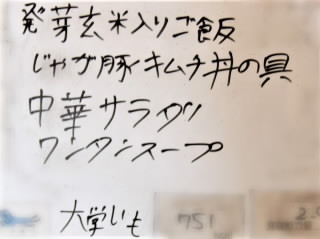 発芽玄米入りご飯
じゃが豚キムチ丼の具
中華サラダ
ワンタンスープ
大学いも
751